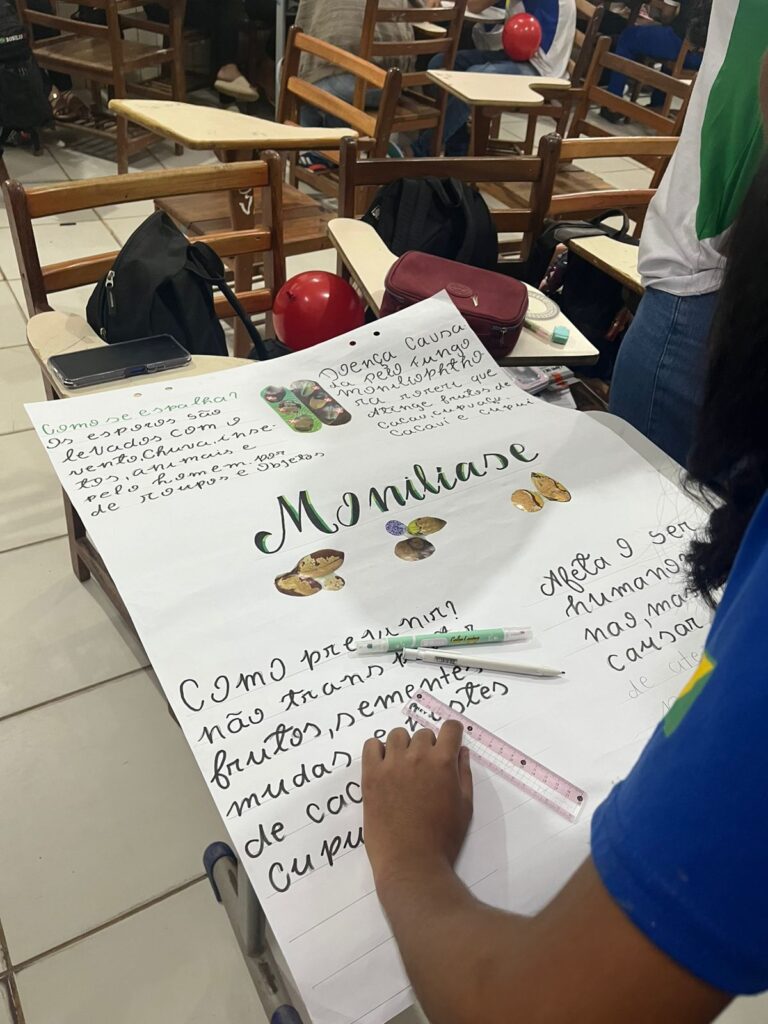 Como se espalha?
Os esporos são
levados com o
vento, chuva, inse-
tos, animais e
pelo homem por
de roupas e objetos
Doença causa
da pelo fungo
moniliophtho
ra roreri que
atinge frutos de
cacau, cupuaçu,
cacaví e cupuí
Moniliase
Como prevenir?
não
frutos, sementes
mudas e
de
Afeta o ser
humano
não, mas
causar
de